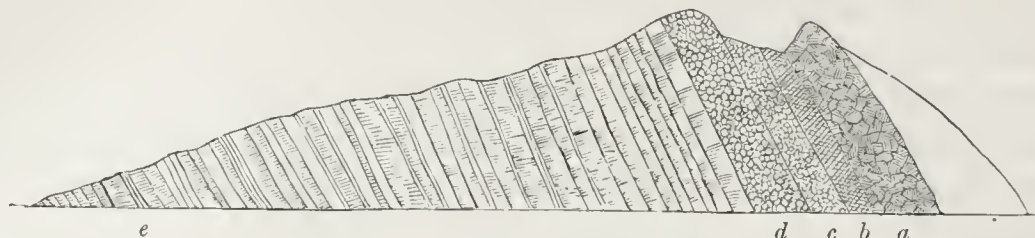 e d c b a